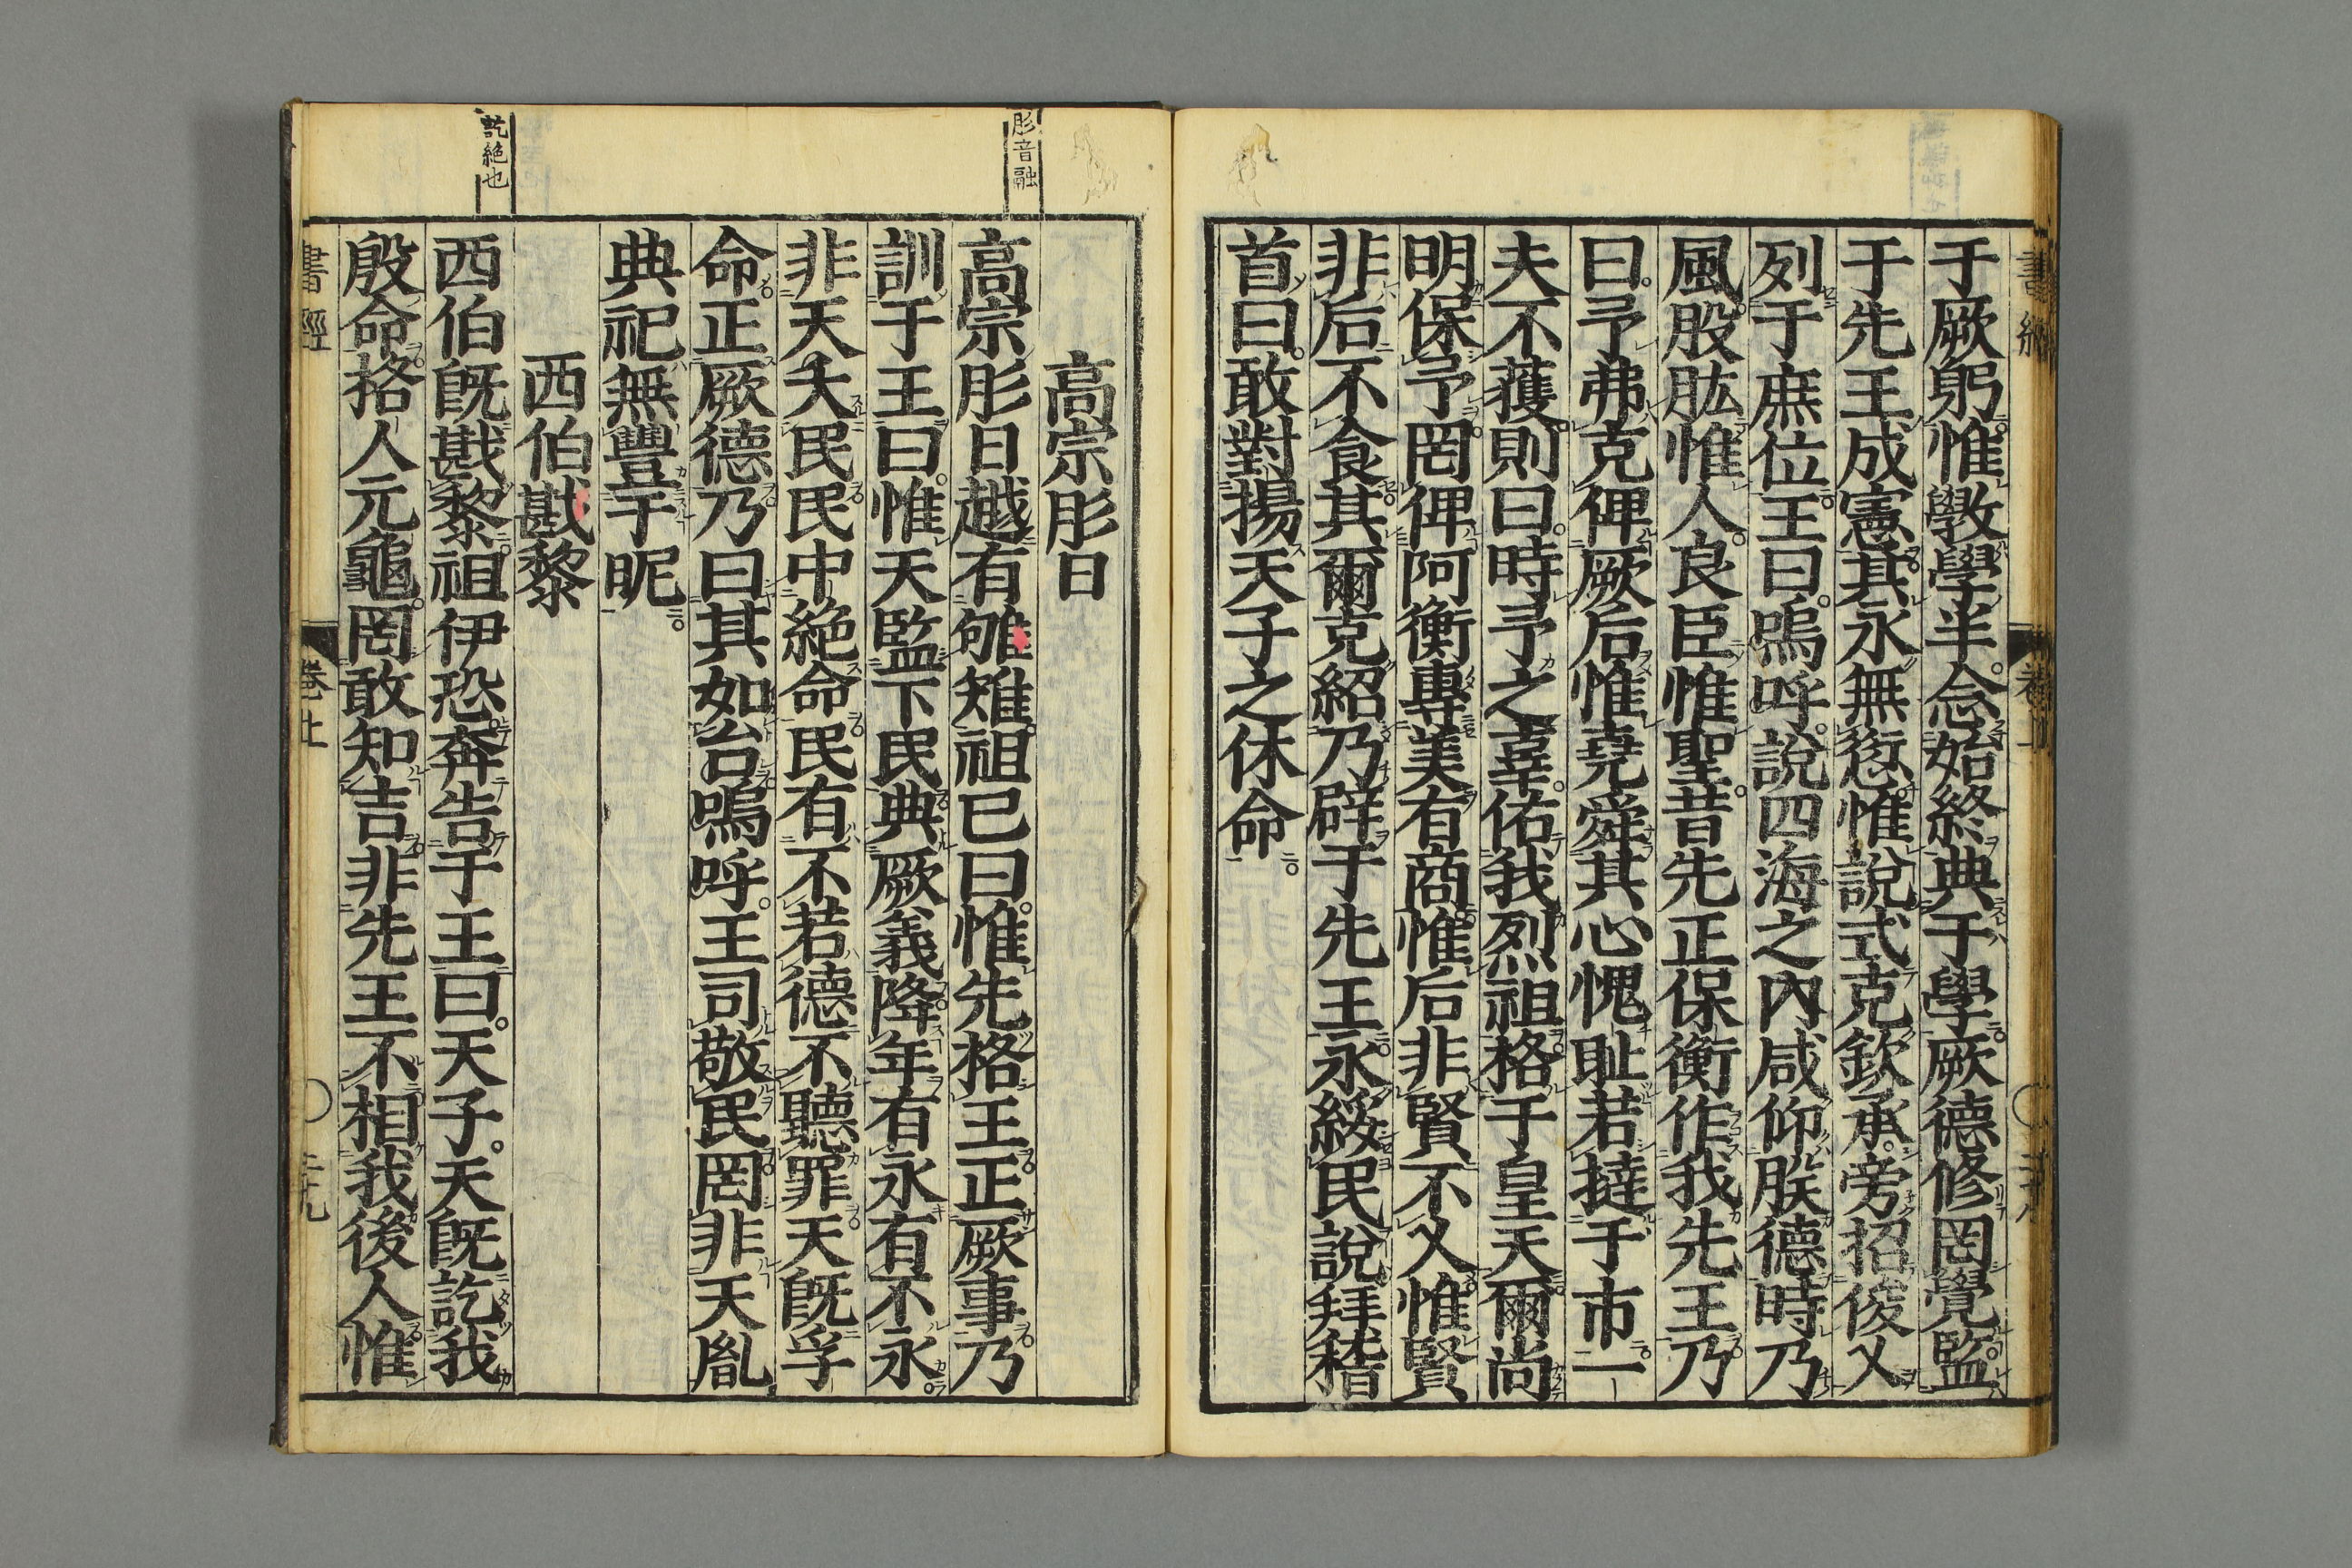 于厥躬惟斆學半念始終典于學厥德修罔覺監
于先王成憲其永無愆惟說式克欽承旁招俊乂
列于庶位王曰嗚呼說四海之內咸仰朕德時乃
風股肱惟人良臣惟聖昔先正保衡作我先王乃
曰予弗克俾厥后惟堯舜其心愧恥若撻于市一
夫不獲則曰時予之辜佑我烈祖格于皇天爾尚
明保予罔俾阿衡專美有商惟后非賢不乂惟賢
非后不食其爾克紹乃辟于先王永綏民說拜稽
首曰敢對揚天子之休命
高宗肜日
高宗肜日越有雊雉祖已曰惟先格王正厥事乃
訓于王曰惟天監下民典厥義降年有永有不永
非天夭民民中絕命民有不若德不聽罪天旣孚
命正厥德乃曰其如台嗚呼王司敬民罔非天胤
典祀無豐于昵
西伯戡黎
西伯旣戡黎祖伊恐奔告于王曰天子天旣訖我
殷命格人元龜罔敢知吉非先王不相我後人惟
肜音融
訖絕也
書經
卷上